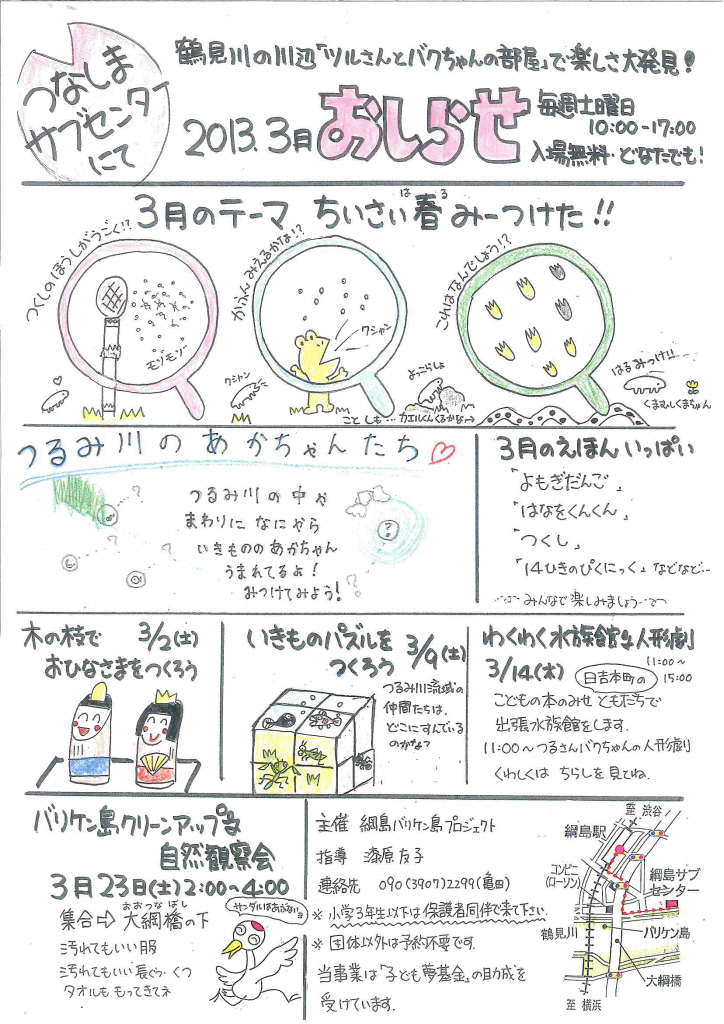 つなしま
サブセンター
にて
鶴見川の川辺「ツルさんとバクちゃんの部屋」で楽しさ大発見!
2013.3月 おしらせ
毎週土曜日
10:00-17:00
入場無料・どなたでも!
3月のテーマ ちいさい春みーつけた!!
はる
つくしのほうしがうごく!?
モゾモゾ
かふんみえるかな!?
クシャン
これはなんでしょう!?
クシャン
よっこらしょ
はるみつけ!!
くまむしくまちゃん
ことしも…カエルくんくるかな→
つるみ川のあかちゃんたち
つるみ川の中や
まわりになにやら
いきもののあかちゃん
うまれてるよ!
みつけてみよう!
?
?
?
?
?
3月のえほんいっぱい
「よもぎだんご」
「はなをくんくん」
「つくし」
「14ひきのぴくにっく」などなど…
みんなで楽しみましょう
木の枝で 3/2(土)
おひなさまをつくろう
いきものパズルを
つくろう 3/9(土)
つるみ川流域の
仲間たちは、
どこにすんでいる
のかな?
わくわく水族館&人形劇
3/14(木) 日吉本町の 11:00~
15:00
こどもの本のみせ ともだちで
出張水族館をします.
11:00~つるさんバクちゃんの人形劇
くわしくは ちらしを見てね.
バリケン島クリーンアップ&
自然観察会
3月23日(土)2:00~4:00
おおつなばし
集合⇨大綱橋の下
汚れてもいい服
汚れてもいい長ぐつ・くつ
タオルももってきてネ
サンダルはあぶないヨ
主催 綱島バリケン島プロジェクト
指導 漆原友子
連絡先 090(3907)2299(亀田)
※小学3年生以下は保護者同伴で来て下さい.
※団体以外は予約不要です.
当事業は「子ども夢基金」の助成を
受けています.
至 渋谷
綱島駅
コンビニ
(ローソン)
綱島サブ
センター
鶴見川
バリケン島
大綱橋
至 横浜